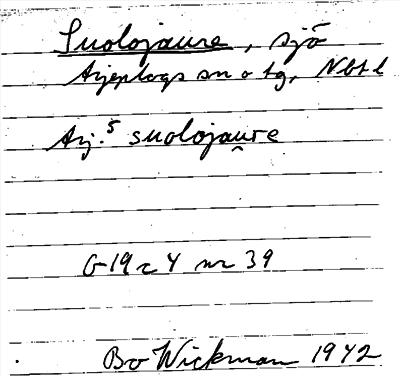 Suolojaure, sjö
Arjeplogs sn o tg, Nbtl
Arj.⁵ suolojau̯re
G19c4 nr 39
Bo Wickman 1942